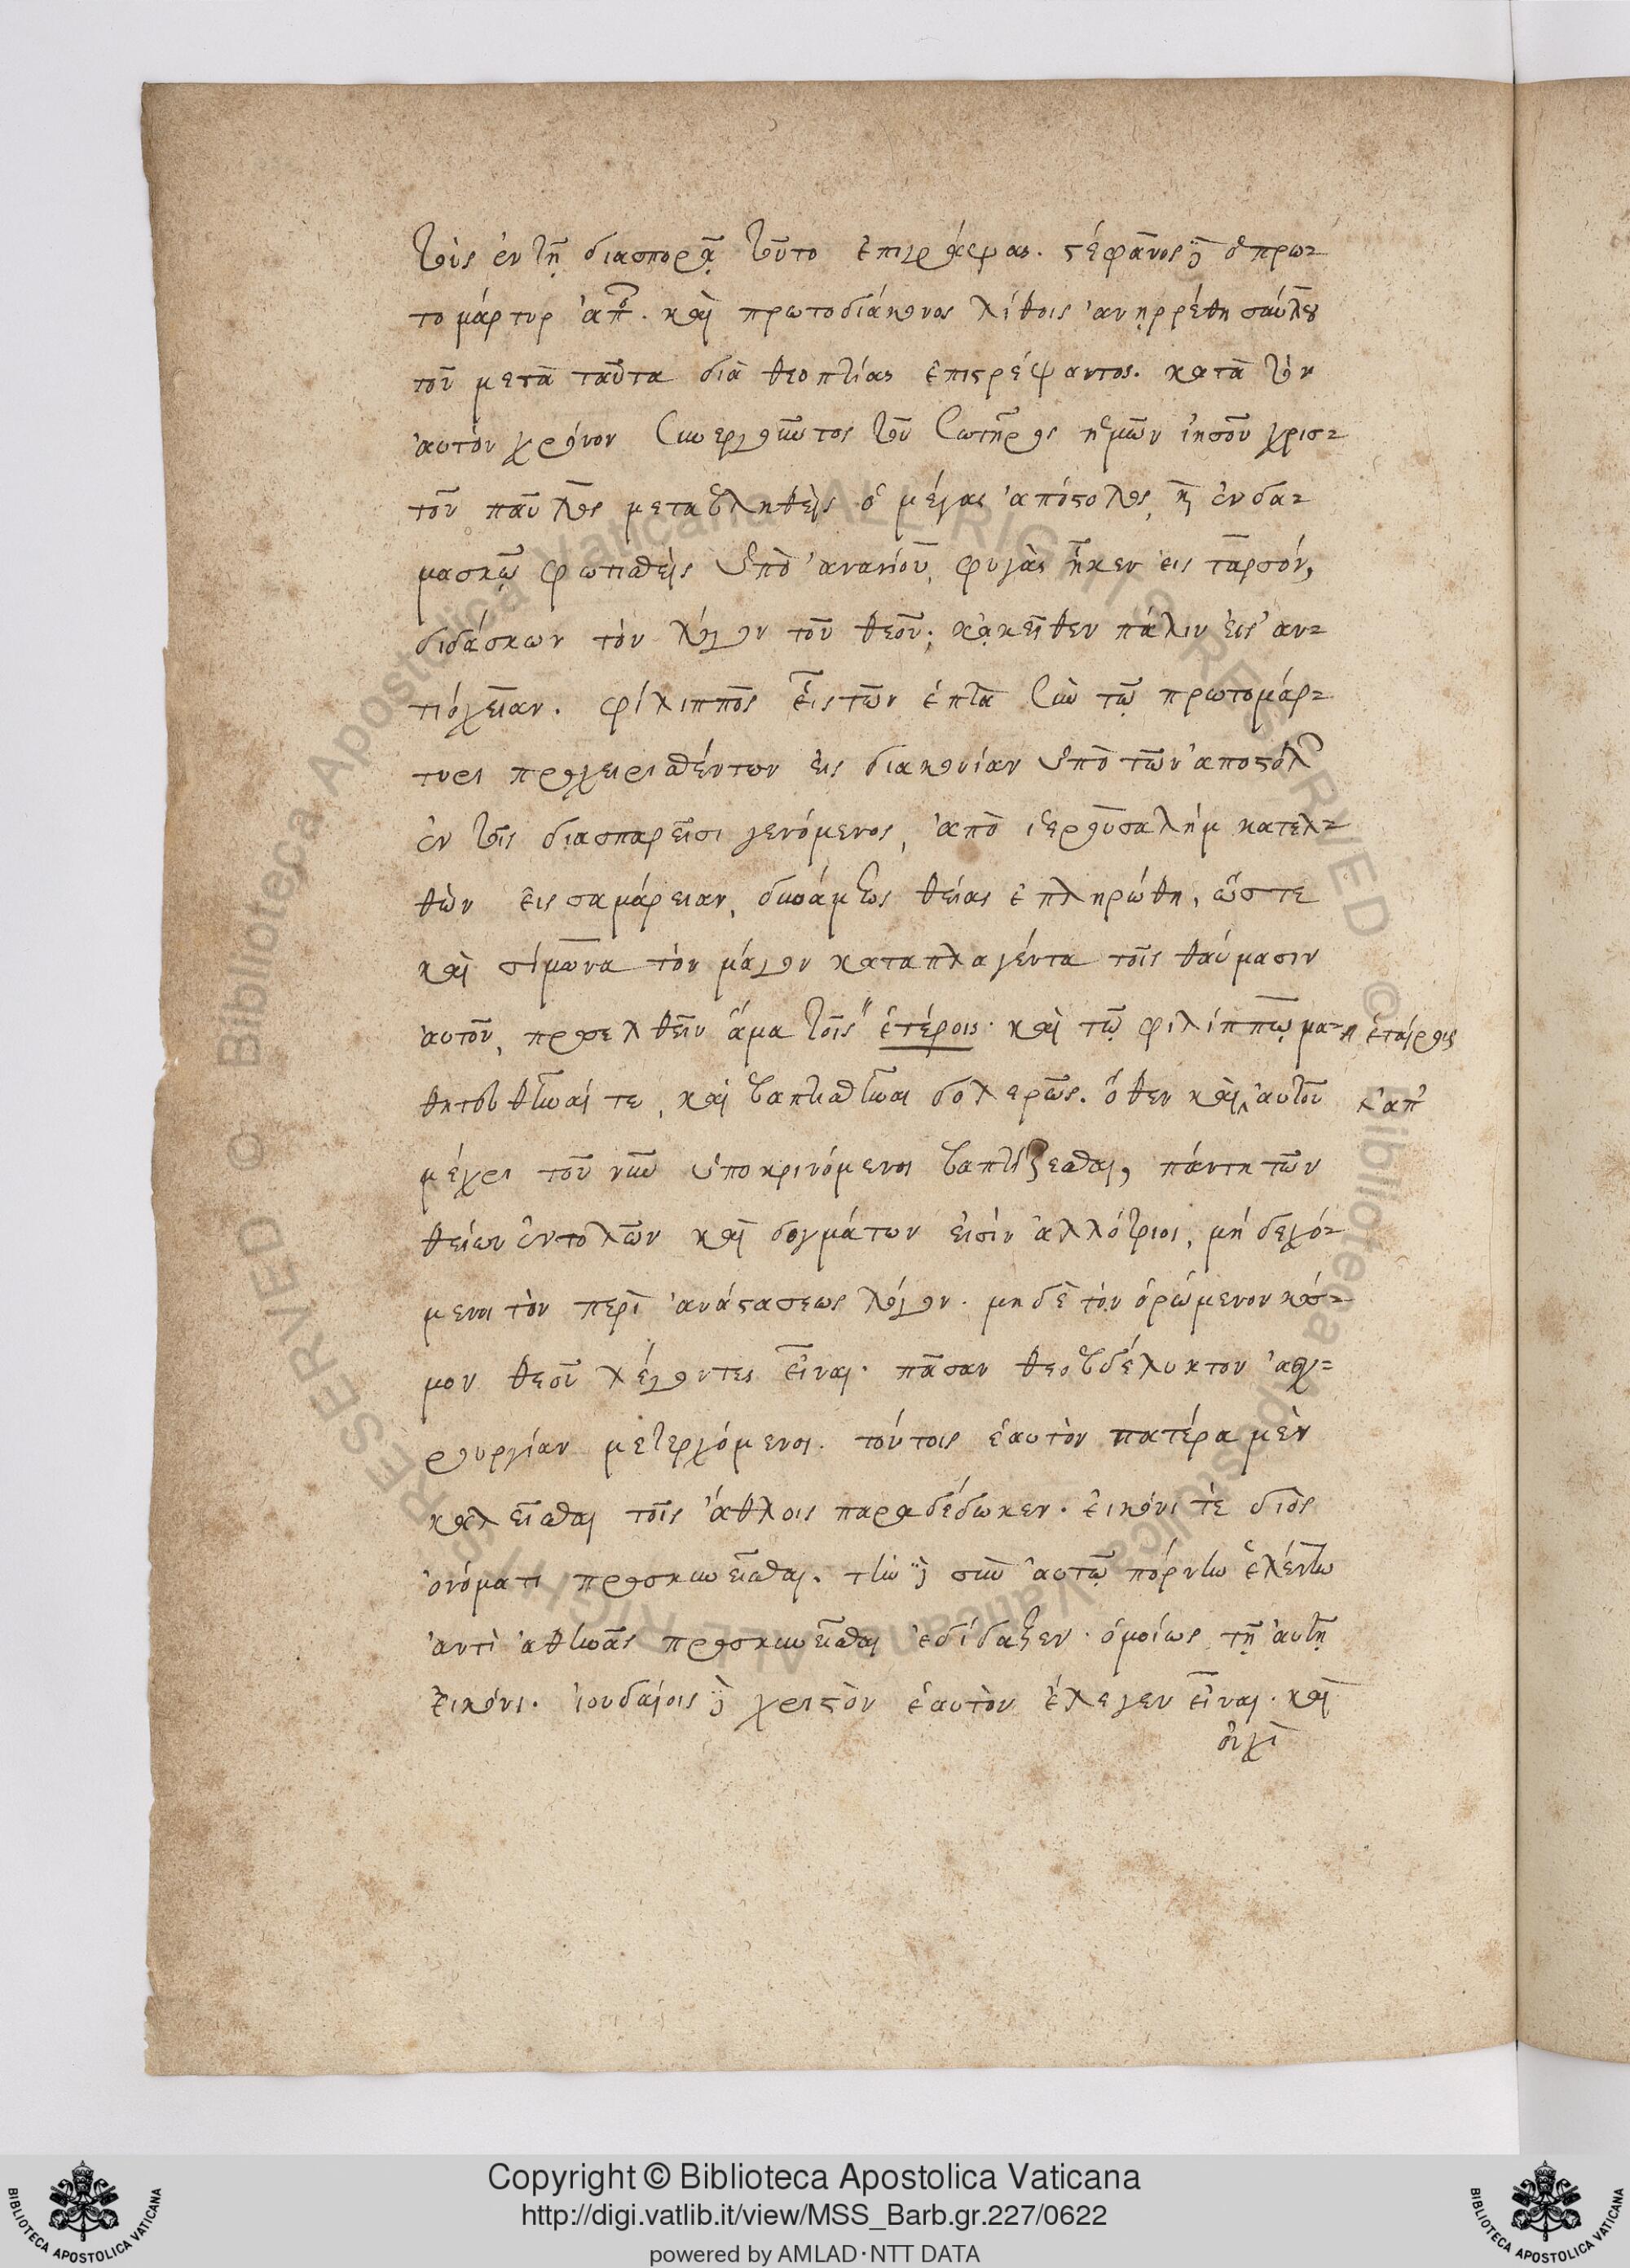 τοῖς ἐν τῇ διασπορᾷ τοῦτο ἐπιγράψας. στέφανος δὲ ὁ πρω=
το μάρτυρ ἀπ. καὶ πρωτοδιάκονος λίθοις ἀνῃρρέθη σαύλου
τοῦ μετὰ ταῦτα διὰ θεοπτίας ἐπιστρέψαντος. κατὰ τὸν
αὐτὸν χρόνον συνεργοῦντος τοῦ σωτῆρος ἡμῶν ἰησοῦ χρισ=
τοῦ παῦλος μεταβληθεὶς ὁ μέγας ἀπόστολος, καὶ ἐν δα=
μασκῷ φωτισθεὶς ὑπὸ ἀνανίου, φυγὰς ἧκεν εἰς ταρσόν,
διδάσκων τὸν λόγον τοῦ θεοῦ; κᾀκεῖθεν πάλιν εἰς ἀν=
τιόχειαν. φίλιππος εἷς τῶν ἑπτὰ σὺν τῷ πρωτομάρ=
τυρι προχειρισθέντων εἰς διακονίαν ὑπὸ τῶν ἀποστόλ
ἐν τοῖς διασπαρεῖσι γενόμενος, ἀπὸ ἱερουσαλήμ κατελ=
θὼν εἰς σαμάρειαν, δυνάμεως θείας ἐπληρώθη, ὥστε
καὶ σίμωνα τὸν μάγον καταπλαγέντα τοῖς θαύμασιν
αὐτοῦ, προσελθεῖν ἅμα τοῖς ἑτέροις. καὶ τῷ φιλίππῳ μα= ἑταίροις
θητευθῆναί τε, καὶ βαπτισθῆναι δολερῶς. ὅθεν καὶ αὐτοῦ οἱ ἀπ'
μέχρι τοῦ νῦν ὑποκρινόμενοι βαπτίζεσθαι, πάντη τῶν
θείων ἐντολῶν καὶ δογμάτων εἰσὶν ἀλλότριοι, μή δεχό=
μενοι τὸν περὶ ἀναστάσεως λόγον. μηδὲ τὸν ὁρώμενον κόσ=
μον θεοῦ λέγοντες εἶναι. πᾶσαν θεοβδέλυκτον αἰσχ=
ρουργίαν μετερχόμενοι. τούτοις ἑαυτὸν πατέρα μὲν
καλεῖσθαι τοῖς ἄθλοις παραδέδωκεν. εἰκόνι τὲ διὸς
ὀνόματι προσκυνεῖσθαι. τὴν δὲ σὺν αὐτῷ πόρνην ἑλένην
ἀντὶ ἀθηνᾶς προσκυνεῖσθαι ἐδίδαξεν. ὁμοίως τῇ αὐτῇ
εἰκόνι. ἰουδαίοις δὲ χριστὸν ἑαυτὸν ἔλεγεν εἶναι. καὶ
οὐχὶ
Copyright © Biblioteca Apostolica Vaticana
http://digi.vatlib.it/view/MSS_Barb.gr.227/0622
powered by AMLAD·NTT DATA